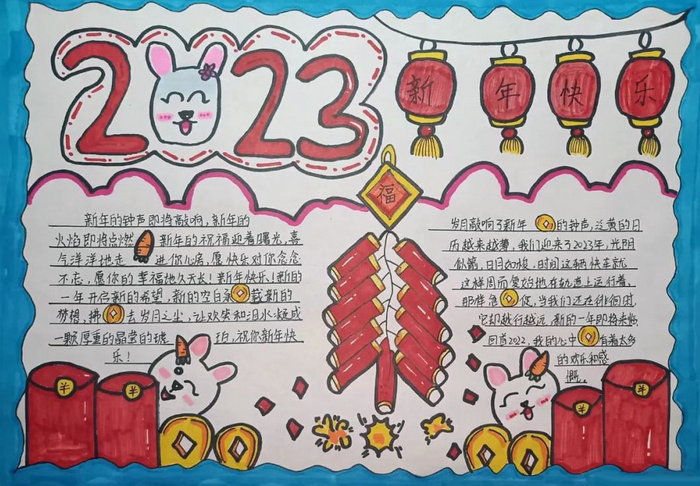 2023
新年快乐
福
新年的钟声即将敲响,新年的
火焰即将点燃 新年的祝福迎着曙光,喜
气洋洋地走 进你心房,愿快乐对你念念
不忘,愿你的幸福地久天长!新年快乐!新的
一年开启新的希望,新的空白 载新的
梦想,拂 去岁月之尘,让欢笑和泪水
一颗厚重的晶莹的琥 珀,祝你新年快
乐!
岁月敲响了新年 的钟声,泛黄的日
历越来越薄,我们迎来了2023年,光阴
似箭,日月如梭,时间这辆快车就
这样周而复始地在轨道上运行着,
那样急 促,当我们还在
它却越行越远,新的一年即将来临
回首2022,我的心中 有着太多
的欢乐和感
慨。
半
半
半
半